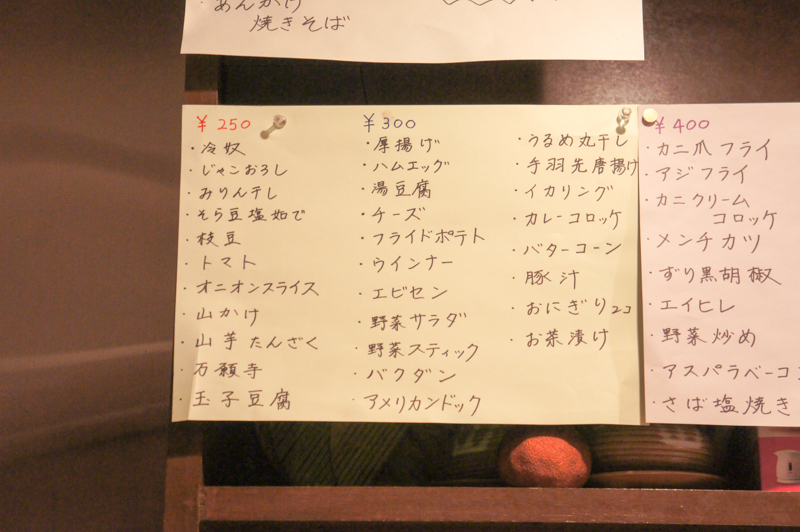 ・あんかけ
焼きそば
¥250
・冷奴
・じゃこおろし
・みりん干し
・そら豆塩茹で
・枝豆
・トマト
・オニオンスライス
・山かけ
・山芋たんざく
・万願寺
・玉子豆腐
¥300
・厚揚げ
・ハムエッグ
・湯豆腐
・チーズ
・フライドポテト
・ウインナー
・エビセン
・野菜サラダ
・野菜スティック
・バクダン
・アメリカンドック
・うるめ丸干し
・手羽先唐揚げ
・イカリング
・カレーコロッケ
・バターコーン
・豚汁
・おにぎり2コ
・お茶漬け
¥400
・カニ爪フライ
・アジフライ
・カニクリーム
コロッケ
・メンチカツ
・ずり黒胡椒
・エイヒレ
・野菜炒め
・アスパラベーコ
・さば塩焼き